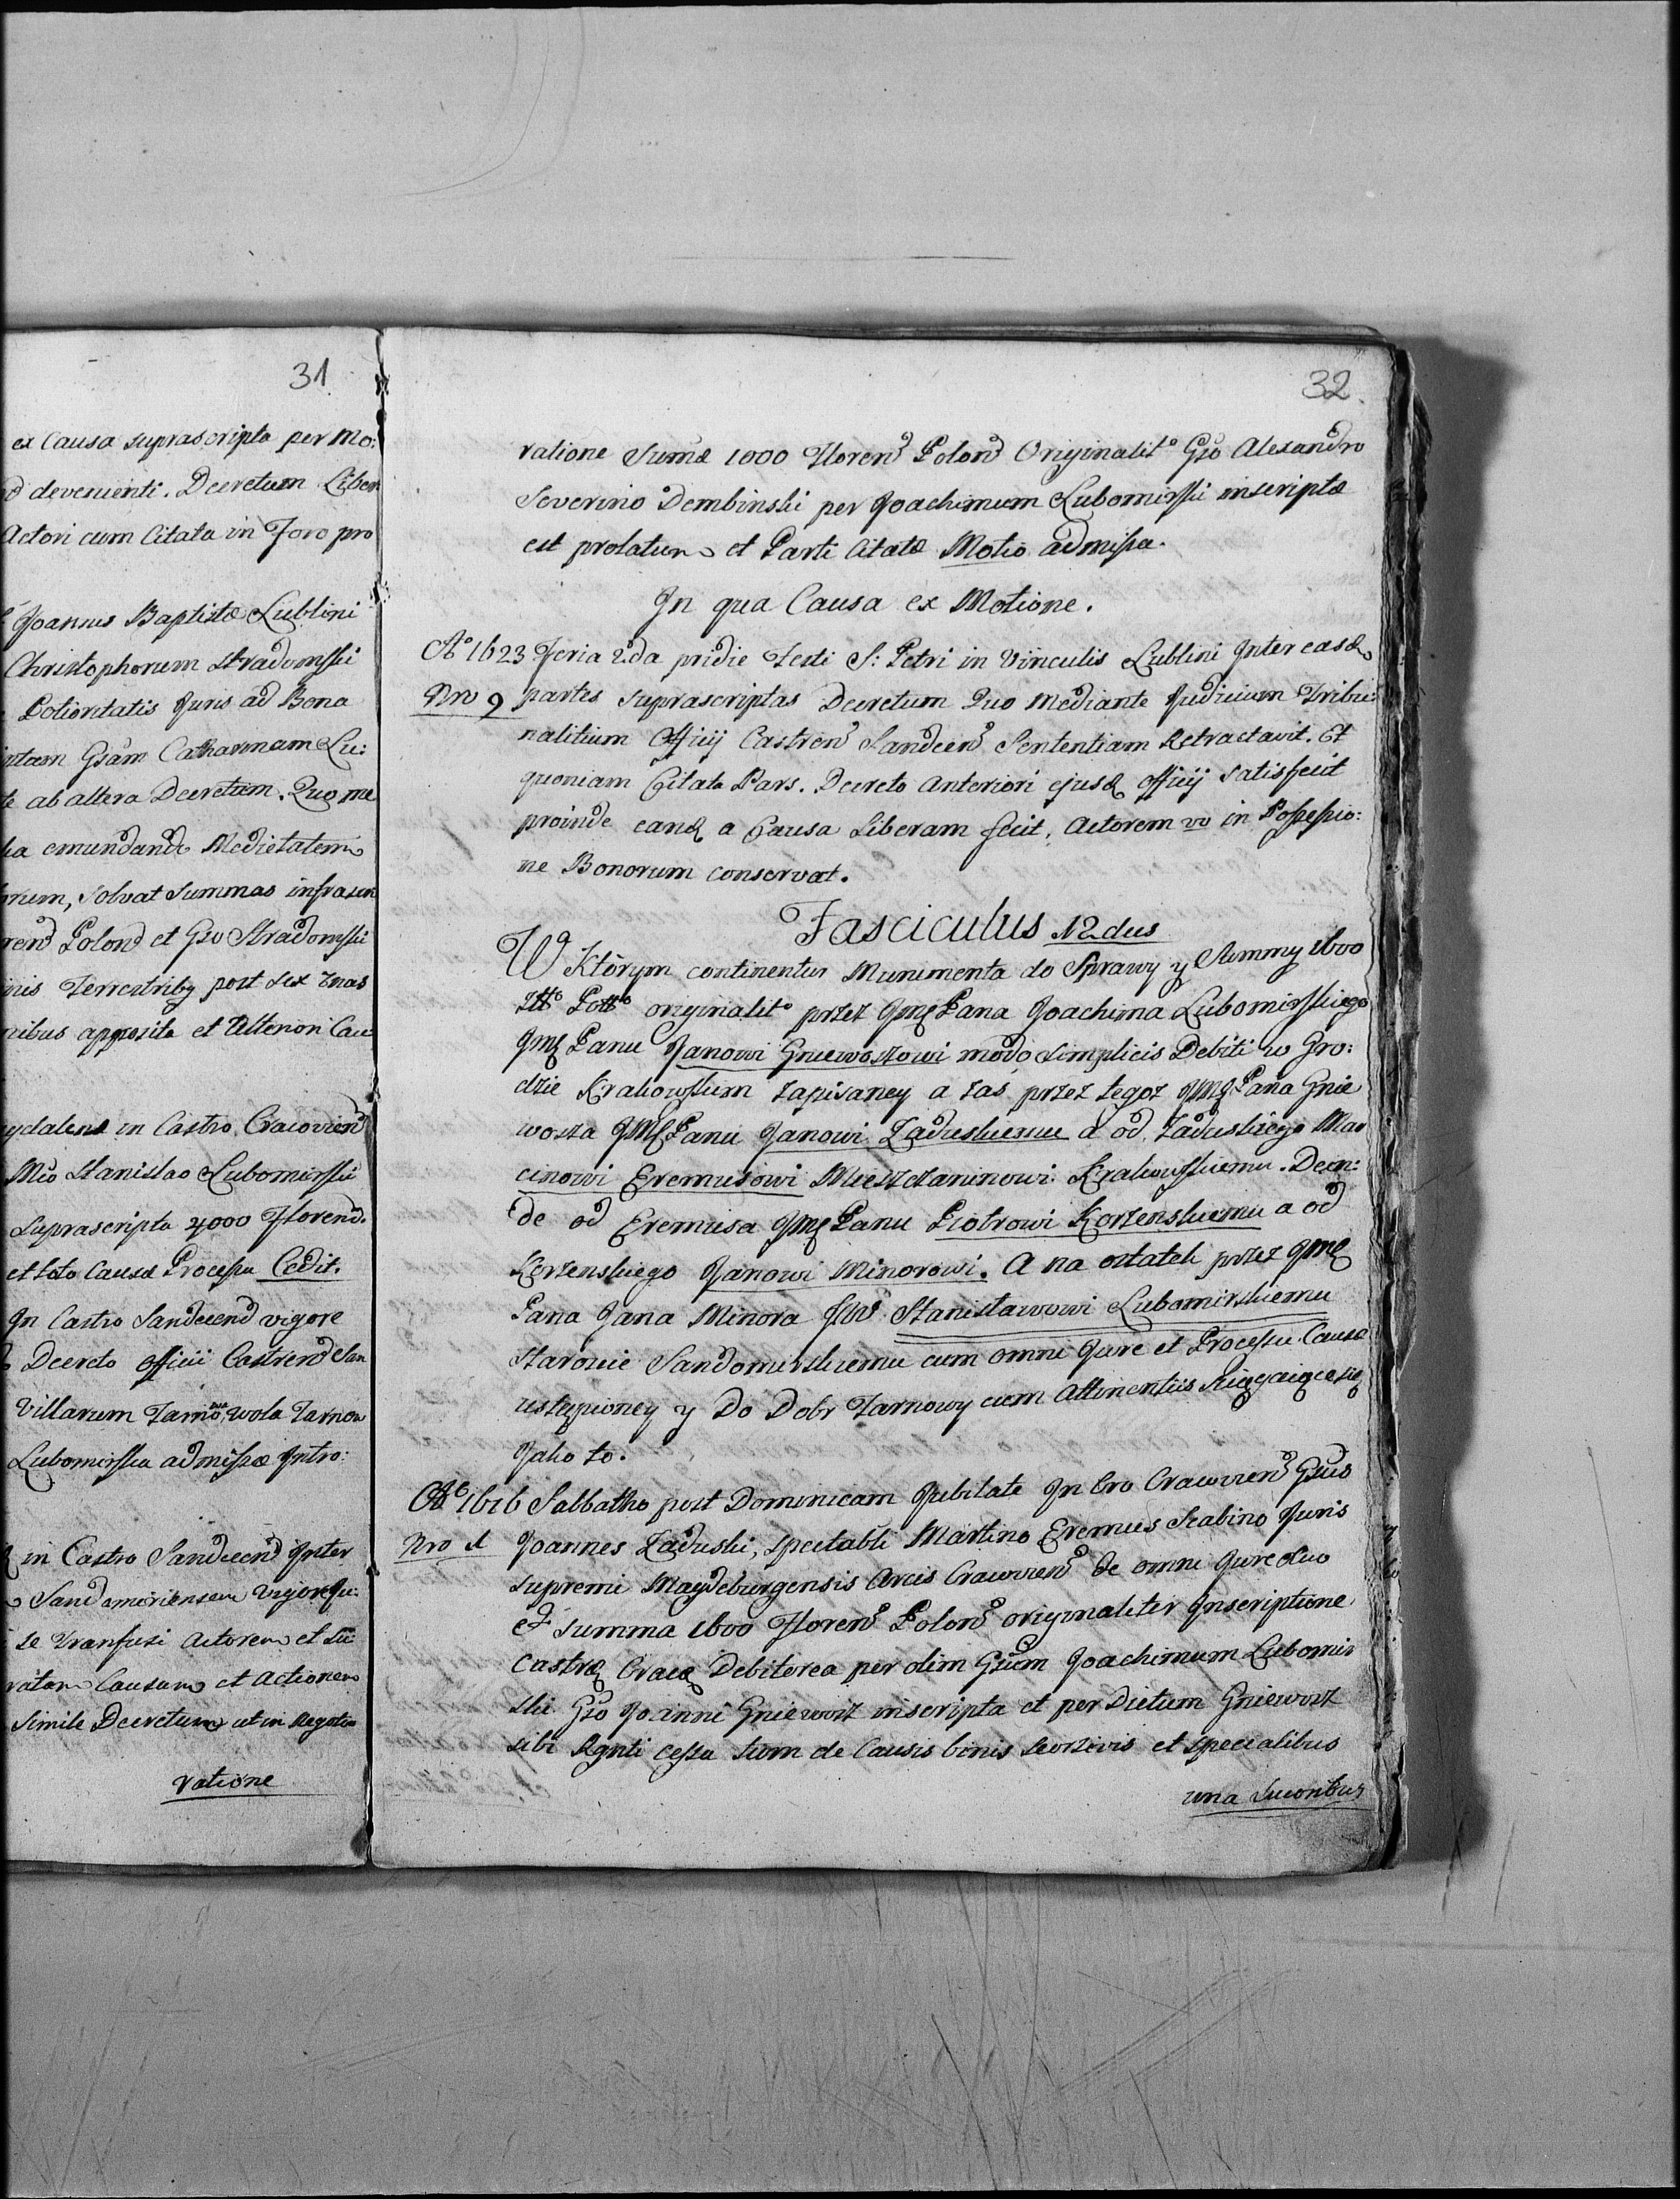 31
ex Causa suprascripta per Mo:
devenienti. Decretum Liber
Actori cum Citata in Foro pro
Joannis Baptistæ Lublini
Christophorum Stradomski
Potioritatis Juris ad Bona
Gsam Catharinam Lu:
te ab altera Decretum. Quo me
emundandi Medietatem
solvat Summas infrascri
Polond et Gso Stradomski
Terrestriby post sex
nibus apposita et Ulteriori Cau:
in Castro Cracoviend
Mco Stanislao Lubomirski
Suprascripta 4000 Florend.
et toto Causæ Processu Cedit.
In Castro Sandecend vigore
Decreto Officii Castrend San
Villarum Tarno wola Tarnow
Lubomirska admissæ Intro:
in Castro Sandecend Inter
Sandomiriensem Vigore
se Transfusi Actorem et
Causam et Actionem
Simile Decretum ut in Negotio
ratione
32.
ratione Sumæ 1000 Florend Polond Originalit° Gso Alexandro
Severino Dembinski per Joachimum Lubomirski inscriptæ
est prolatum et Parti Citatæ Motio admissa.
In qua Causa ex Motione.
A° 1623 Feria 2da pridie Festi S: Petri in Vinculis Lublini Inter easd
Nro 9 partes suprascriptas Decretum Quo mediante Judicium Tribu:
nalitium Officij Castrend Sandecend Sententiam Retractavit. Et
quoniam Citata Pars. Decreto Anteriori ejusd officij satisfecit
proinde eand a Causa Liberam fecit, Actorem vo in Possessio:
ne Bonorum conservat.
Fasciculus 12dus
W Którym continentur Munimenta do Sprawy y Summy 1600
Złł° Poll° originalit° przez Jmę Pana Joachima Lubomirskiego
Jmę Panu Janowi Gniewoszowi modo simplicis Debiti w Gro:
dzie Krakowskim zapisaney a zas przez tegoz Jmę Pana Gnie
wosza Jmę Panu Janowi Zaduskiemu a od Zaduskiego Mar
cinowi Eremusowi Mieszczaninowi Krakowskiemu. Dein:
de od Eremusa Jmę Panu Piotrowi Korzenskiemu a od
Korzenskiego Janowi Minorowi. A na ostatek przez Jmę
Pana Jana Minora JW Stanisławowi Lubomirskiemu
Staroscie Sandomirskiemu cum omni Jure et Processu Causæ
ustąpioney y Do Dobr Tarnowy cum Attinentiis sciągaiącesię
Jako to.
A° 1616 Sabbatho post Dominicam Jubilate In Cro Cracoviend Gsus
Nro 1 Joannes Zaduski, spectabli Martino Eremus Scabino Juris
supremi Maydeburgensis Arcis Cracoviend de omni Jure suo
et summa 1600 Florend Polond originaliter Inscriptione
Castrę Cracę Debitorea per olim Gsum Joachimum Lubomir
ski Gso Joanni Gniewosz inscripta et per Dictum Gniewosz
sibi Rgnti cessa tum de Causis binis seorsivis et specialibus
una Sucontbus